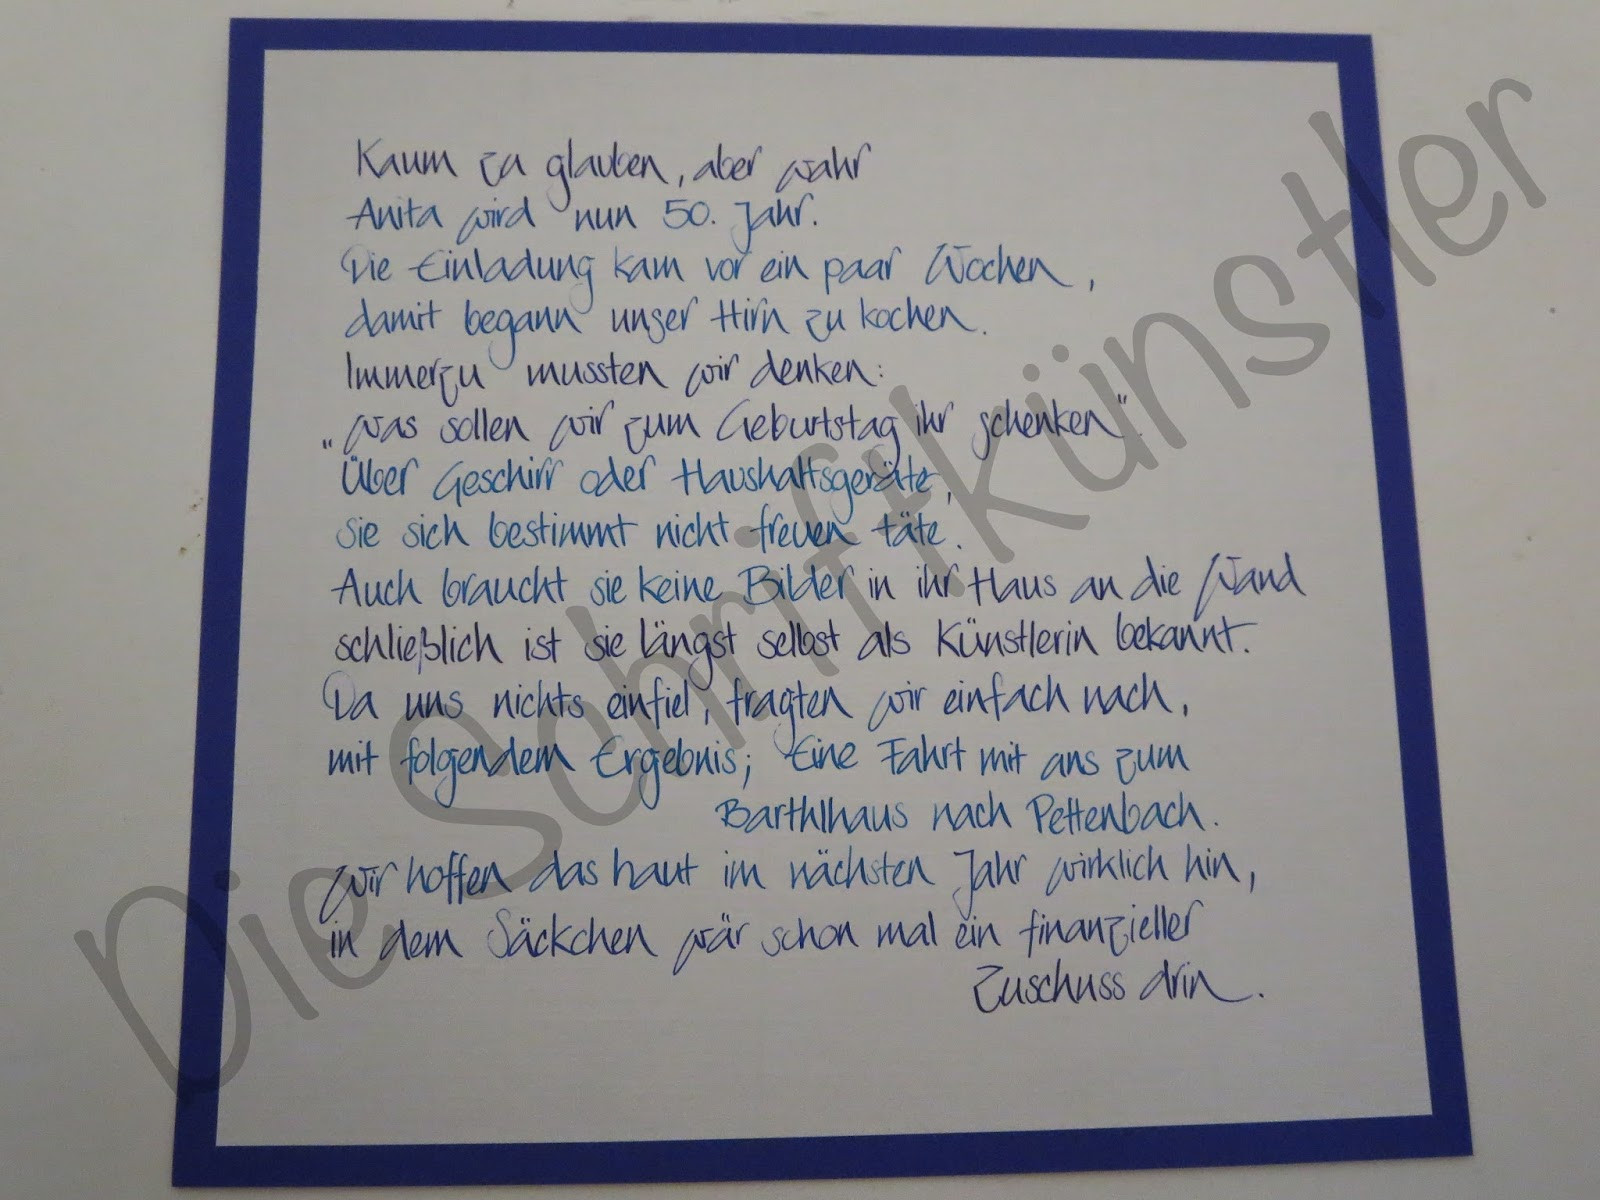 Kaum zu glauben, aber wahr
Anita wird nun 50. Jahr.
Die Einladung kam vor ein paar Wochen,
damit begann unser Hirn zu kochen.
Immerzu mussten wir denken:
„Was sollen wir zum Geburtstag ihr schenken".
Über Geschirr oder Haushaltsgeräte,
sie sich bestimmt nicht freuen täte.
Auch braucht sie keine Bilder in ihr Haus an die Wand
schließlich ist sie längst selbst als Künstlerin bekannt.
Da uns nichts einfiel, fragten wir einfach nach,
mit folgendem Ergebnis; Eine Fahrt mit ans zum
Barthlhaus nach Pettenbach.
Wir hoffen das haut im nächsten Jahr wirklich hin,
in dem Säckchen wär schon mal ein finanzieller
Zuschuss drin.
Die Schriftkünstler